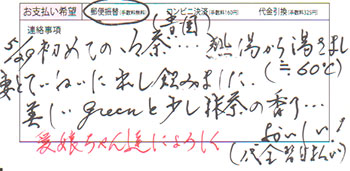 お支払い希望 郵便振替(手数料無料) コンビニ決済(手数料160円) 代金引換(手数料325円)
連絡事項
5/29 初めての 茶… 熱湯から湯さまし
(≒60℃)
ていねいに出し飲みました。
美しいgreenと少し抹茶の香り…
おいしい!
愛娘ちゃん達によろしく